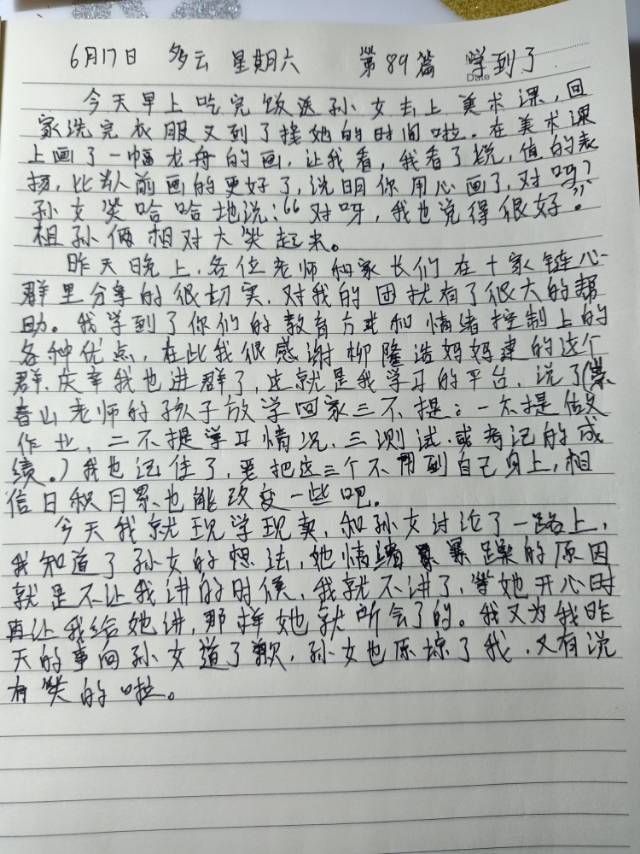 6月17日 多云 星期六 第89篇 学到了
Date
今天早上吃完饭送孙女去上美术课,回
家洗完衣服又到了接她的时间啦.在美术课
上画了一幅龙舟的画,让我看,我看了说,值的表
扬,比以前画的更好了,说明你用心画了,对吗?
孙女笑哈哈地说:“对呀,我也觉得很好”.
祖孙俩相对大笑起来。
昨天晚上.各位老师和家长们在十家链心
群里分享的很切实.对我的困扰有了很大的帮
助。我学到了你们的教育方式和情绪控制上的
各种优点,在此我很感谢柳隆浩妈妈建的这个
群.庆幸我也进群了,这就是我学习的平台.说了(
春山老师的孩子放学回家三不提:一不提做
作业,二不提学习情况.三测试.或考记的成
绩.)我也记住了,要把这三个不用到自己身上,相
信日积月累也能改变一些吧.
今天我就现学现卖,和孙女讨论了一路上,
我知道了孙女的想法,她情绪暴躁的原因
就是不让我讲的时候,我就不讲了,等她开心时
再让我给她讲,那样她就所会了的。我又为我昨
天的事向孙女道了歉,孙女也原谅了我,又有说
有笑的啦。